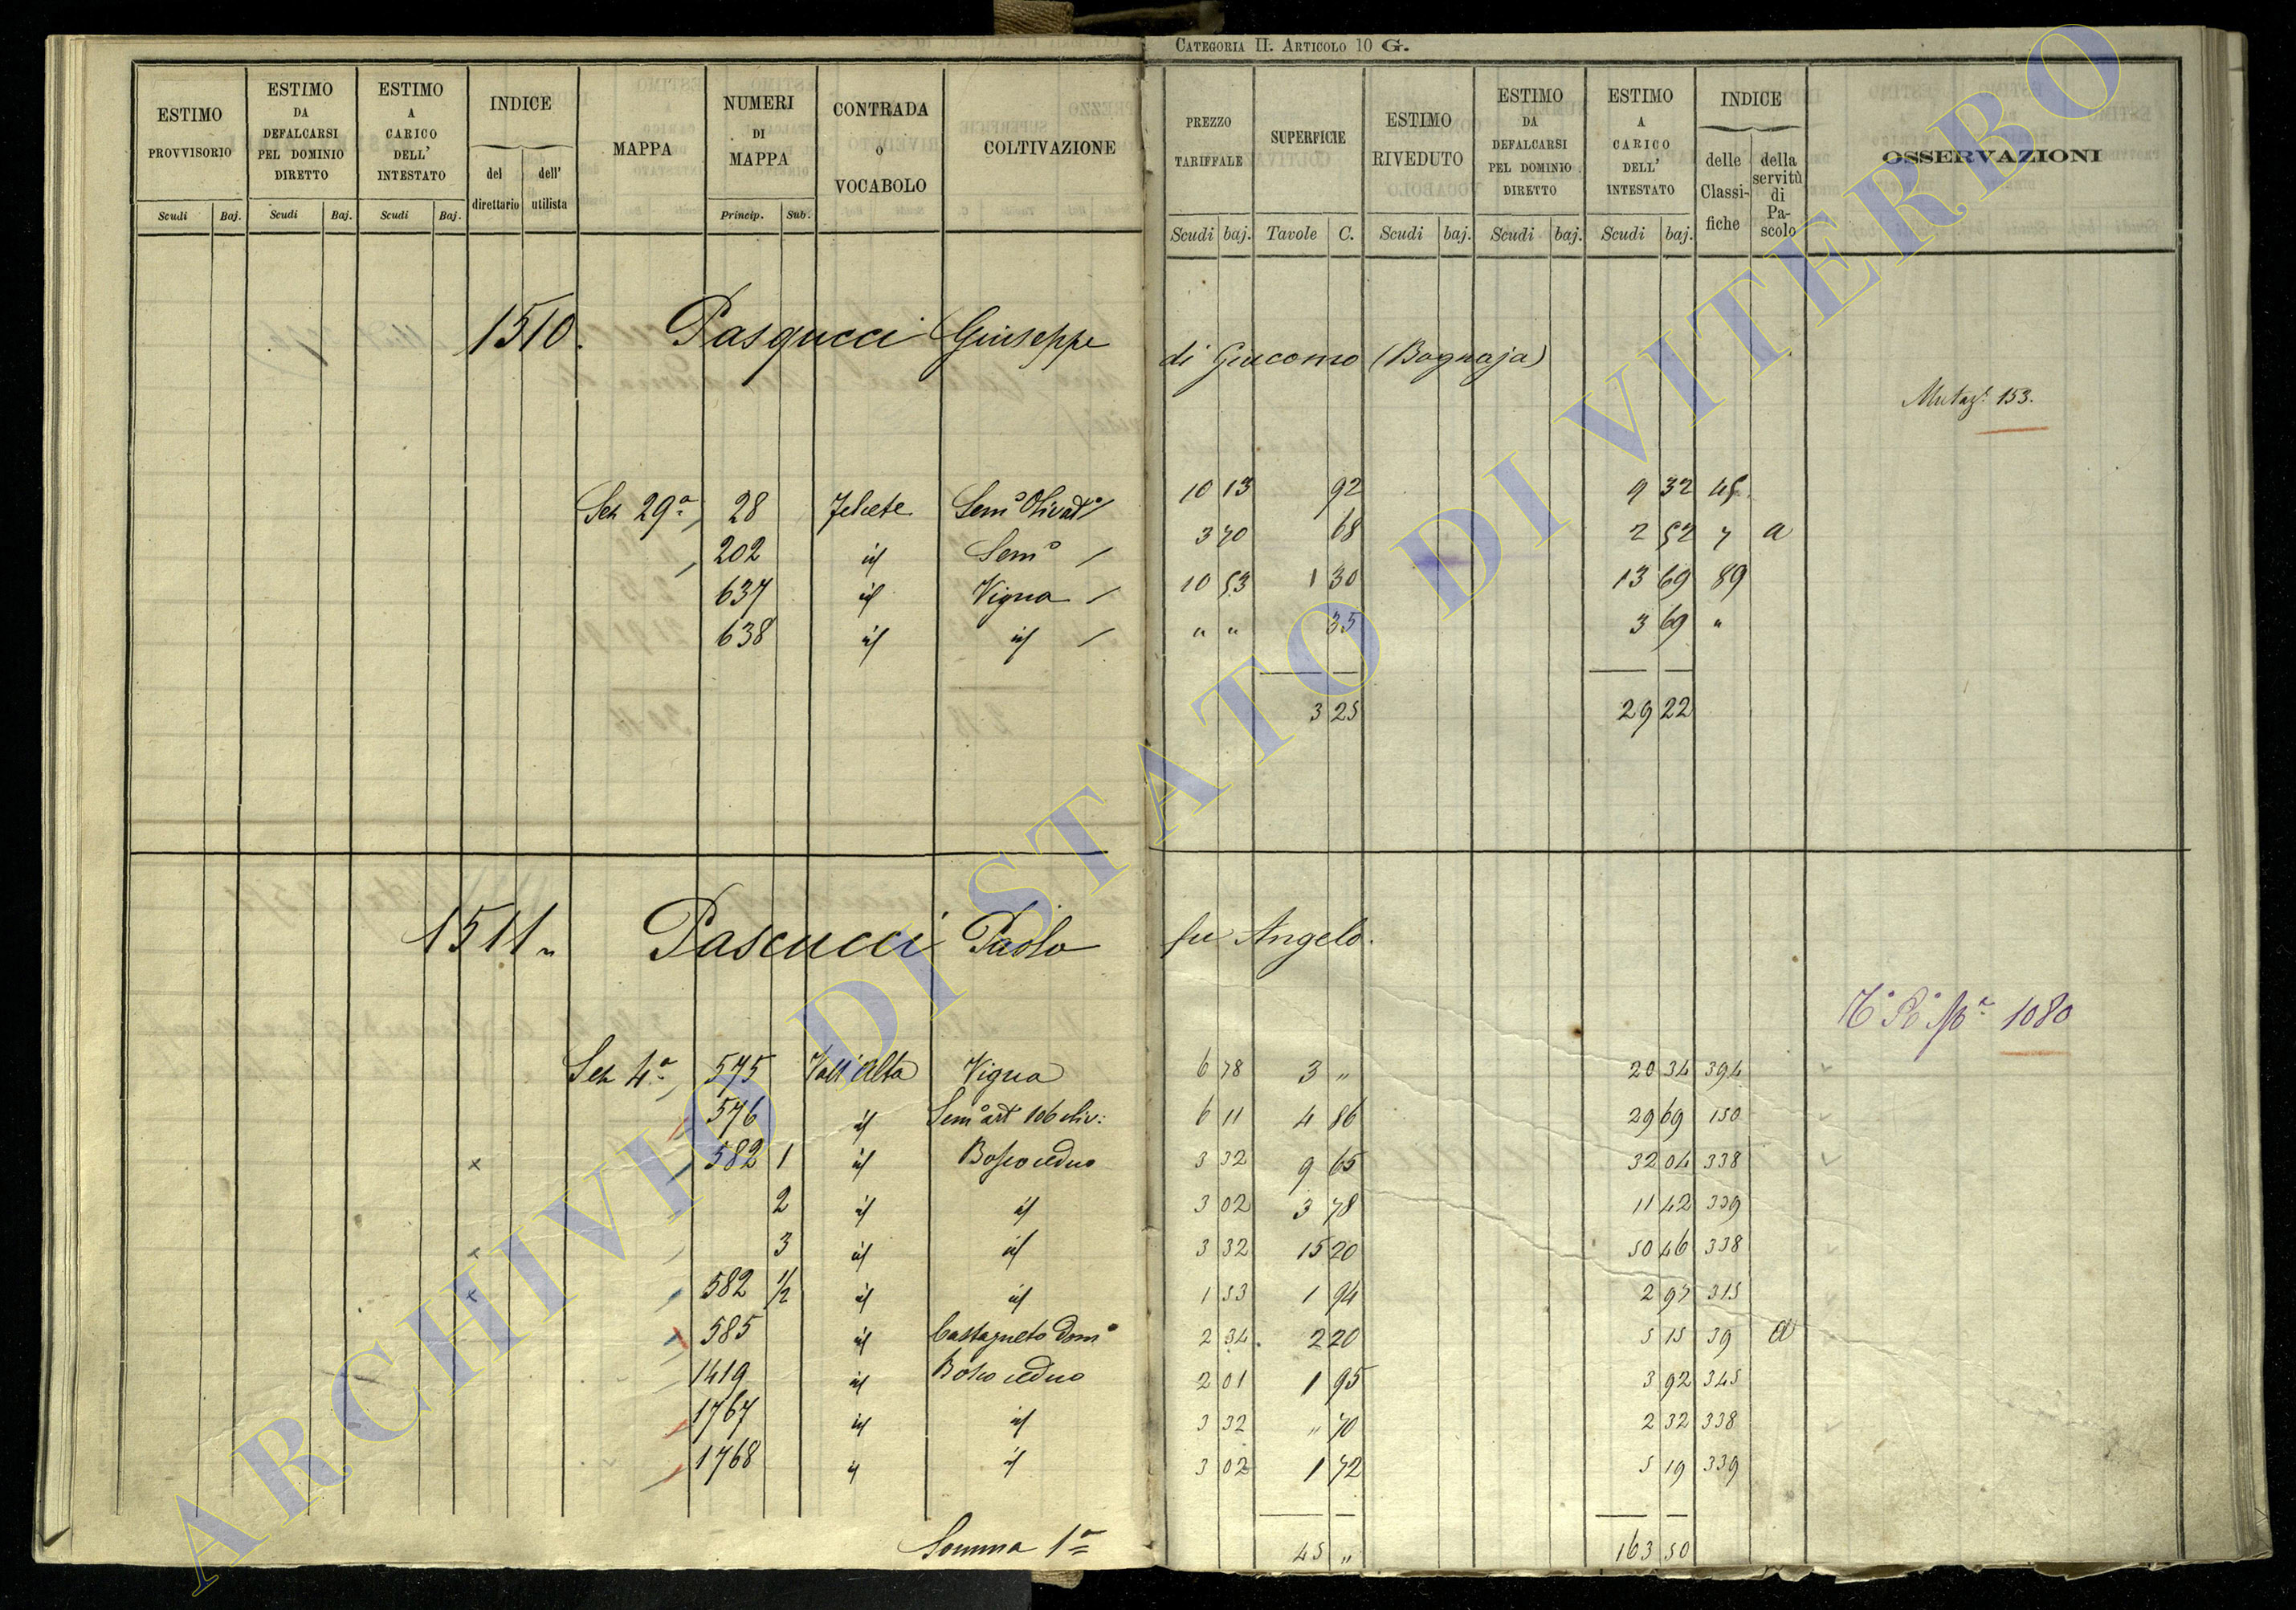 CATEGORIA II. ARTICOLO 10 G.
ESTIMO PROVVISORIO | ESTIMO DA DEFALCARSI PEL DOMINIO DIRETTO | ESTIMO A CARICO DELL' INTESTATO | INDICE del direttario dell' utilista | MAPPA | NUMERI DI MAPPA | CONTRADA O VOCABOLO | COLTIVAZIONE | PREZZO TARIFFALE | SUPERFICIE | ESTIMO RIVEDUTO | ESTIMO DA DEFALCARSI PEL DOMINIO DIRETTO | ESTIMO A CARICO DELL' INTESTATO | INDICE delle Classifiche della servitù di Pascolo | OSSERVAZIONI
Scudi Baj. Scudi Baj. Scudi Baj. Princip. Sub. Scudi baj. Tavole C. Scudi baj. Scudi baj. Scudi baj.
1510. Pasqucci Giuseppe di Giacomo (Bagnaja)
Mutaz. 153.
Sez 29a 28 Sem° Olivat° 10 13 92 9 32 45
202 id Sem° 3 70 68 2 52 7 a
637 id Vigna 10 53 1 30 13 69 89
638 id id " " 35 3 69 "
3 25 29 22
1511 Pascucci Paolo fu Angelo.
1080
Sez 4a 575 Vall'alta Vigna 6 78 3 " 20 34 394
576 id Sem° art 106 oliv: 6 11 4 86 29 69 150
582 1 id Bosco ceduo 3 32 9 65 32 04 338
2 id id 3 02 3 78 11 42 339
3 id id 3 32 15 20 50 46 338
582 1/2 id id 1 53 1 94 2 97 315
585 id Castagneto Dom° 2 34 2 20 5 15 39 a
1419 id Bosco ceduo 2 01 1 95 3 92 345
1767 id id 3 32 " 70 2 32 338
1768 id id 3 02 1 72 5 19 339
Somma 1a 45 " 163 50
ARCHIVIO DI STATO DI VITERBO